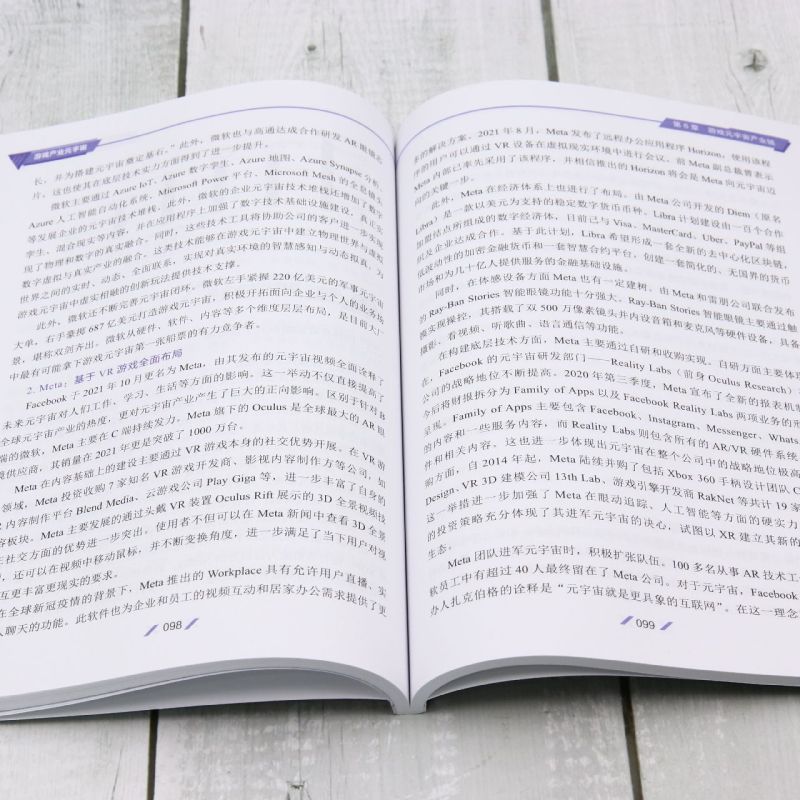 游戏产业元宇宙
长，并为搭建元宇宙奠定基石。”此外，微软也与高通达成合作研发 AR 眼镜芯
片，这也使其在底层技术实力方面得到了进一步提升。
微软主要通过 Azure IoT、Azure 数字孪生、Azure 地图、Azure Synapse 分析、
Azure 人工智能自动化系统、Microsoft Power 平台、Microsoft Mesh 的全息镜头
等发展企业的元宇宙技术堆栈。此外，微软的企业元宇宙技术堆栈还增加了数字
孪生、混合现实等内容，并在应用程序上加强了数字技术基础设施建设，真正实
现了物理和数字的真实融合。同时，这些技术工具将协助公司的客户进一步实现
数字虚拟与真实产业的融合。这类技术能够在游戏元宇宙中建立物理世界与虚拟
世界之间的实时、动态、全面联系，实现对真实环境的智慧感知与动态拟真，为
游戏元宇宙中虚实相融的创新玩法提供技术支撑。
此外，微软还不断完善元宇宙闭环。微软左手紧握 220 亿美元的军事元宇宙
大单，右手豪掷 687 亿美元打造游戏元宇宙，积极开拓面向企业与个人的业务场
景，堪称双剑齐出。微软从硬件、软件、内容等多个维度层层布局，是目前大厂
中最有可能拿下游戏元宇宙第一张船票的有力竞争者。
2. Meta：基于 VR 游戏全面布局
Facebook 于 2021 年 10 月更名为 Meta，由其发布的元宇宙视频全面诠释了
未来元宇宙对人们工作、学习、生活等方面的影响。这一举动不仅直接提高了
全球元宇宙产业的热度，更对元宇宙产业产生了巨大的正向影响。区别于针对 B
端的微软，Meta 主要在 C 端持续发力。Meta 旗下的 Oculus 是全球最大的 AR 眼
镜供应商，其销量在 2021 年更是突破了 1000 万台。
Meta 在内容基础上的建设主要通过 VR 游戏本身的社交优势开展。在 VR 游
领域，Meta 投资收购 7 家知名 VR 游戏开发商、影视内容制作方等公司，如
内容制作平台 Blend Media、云游戏公司 Play Giga 等，进一步丰富了自身的
容板块。Meta 主要发展的通过头戴 VR 装置 Oculus Rift 展示的 3D 全景视频技
社交方面的优势进一步突出。使用者不但可以在 Meta 新闻中查看 3D 全景
，还可以在视频中移动鼠标，并不断变换角度，进一步满足了当下用户对视
互更丰富更现实的要求。
在全球新冠疫情的背景下，Meta 推出的 Workplace 具有允许用户直播、实
人聊天的功能。此软件也为企业和员工的视频互动和居家办公需求提供了更
098
第 6 章 游戏元宇宙产业链
的解决方案。2021 年 8 月，Meta 发布了远程办公应用程序 Horizon，使用该程
序的用户可以通过 VR 设备在虚拟现实环境中进行会议，前 Meta 副总裁曾表示
Meta 内部已率先采用了该程序，并相信推出的 Horizon 将会是 Meta 向元宇宙迈
向的关键一步。
此外，Meta 在经济体系上也进行了布局。由 Meta 公司开发的 Diem（原名
Libra）是一款以美元为支持的稳定数字货币币种，Libra 计划建设由一百个合作
加盟结点所组成的数字经济体，目前已与 Visa、MasterCard、Uber、PayPal 等组
织及企业达成合作。基于此计划，Libra 希望形成一套全新的去中心化区块链，
低波动性的加密金融货币和一套智慧合约平台，创建一套简化的、无国界的货币
市场和为几十亿人提供服务的金融基础设施。
同时，在体感设备方面 Meta 也有一定建树。由 Meta 和雷朋公司联合发布
的 Ray-Ban Stories 智能眼镜功能十分强大。Ray-Ban Stories 智能眼镜主要通过触
摸实现操控，其搭载了双 500 万像素镜头并内设音箱和麦克风等硬件设备，具备
摄影、看视频、听歌曲、语言通信等功能。
在构建底层技术方面，Meta 主要通过自研和收购实现。自研方面主要体现
在，Facebook 的元宇宙研发部门——Reality Labs（前身 Oculus Research）
公司的战略地位不断提高。2020 年第三季度，Meta 宣布了全新的报表机制
今后将财报拆分为 Family of Apps 以及 Facebook Reality Labs 两项业务的形
呈现。Family of Apps 主要包含 Facebook、Instagram、Messenger、Whats
的内容和一些服务内容，而 Reality Labs 则包含所有的 AR/VR 硬件系统
件和相关内容。这也进一步体现出元宇宙在整个公司中的战略地位极高
购方面，自 2014 年起，Meta 陆续并购了包括 Xbox 360 手柄设计团队 C
Design、VR 3D 建模公司 13th Lab、游戏引擎开发商 RakNet 等共计 19 家
这一举措进一步加强了 Meta 在眼动追踪、人工智能等方面的硬实力
的投资策略充分体现了其进军元宇宙的决心，试图以 XR 建立其新的
生态。
Meta 团队进军元宇宙时，积极扩张队伍。100 多名从事 AR 技术工
软员工中有超过 40 人最终留在了 Meta 公司。对于元宇宙，Facebook
办人扎克伯格的诠释是“元宇宙就是更具象的互联网”。在这一理念
099